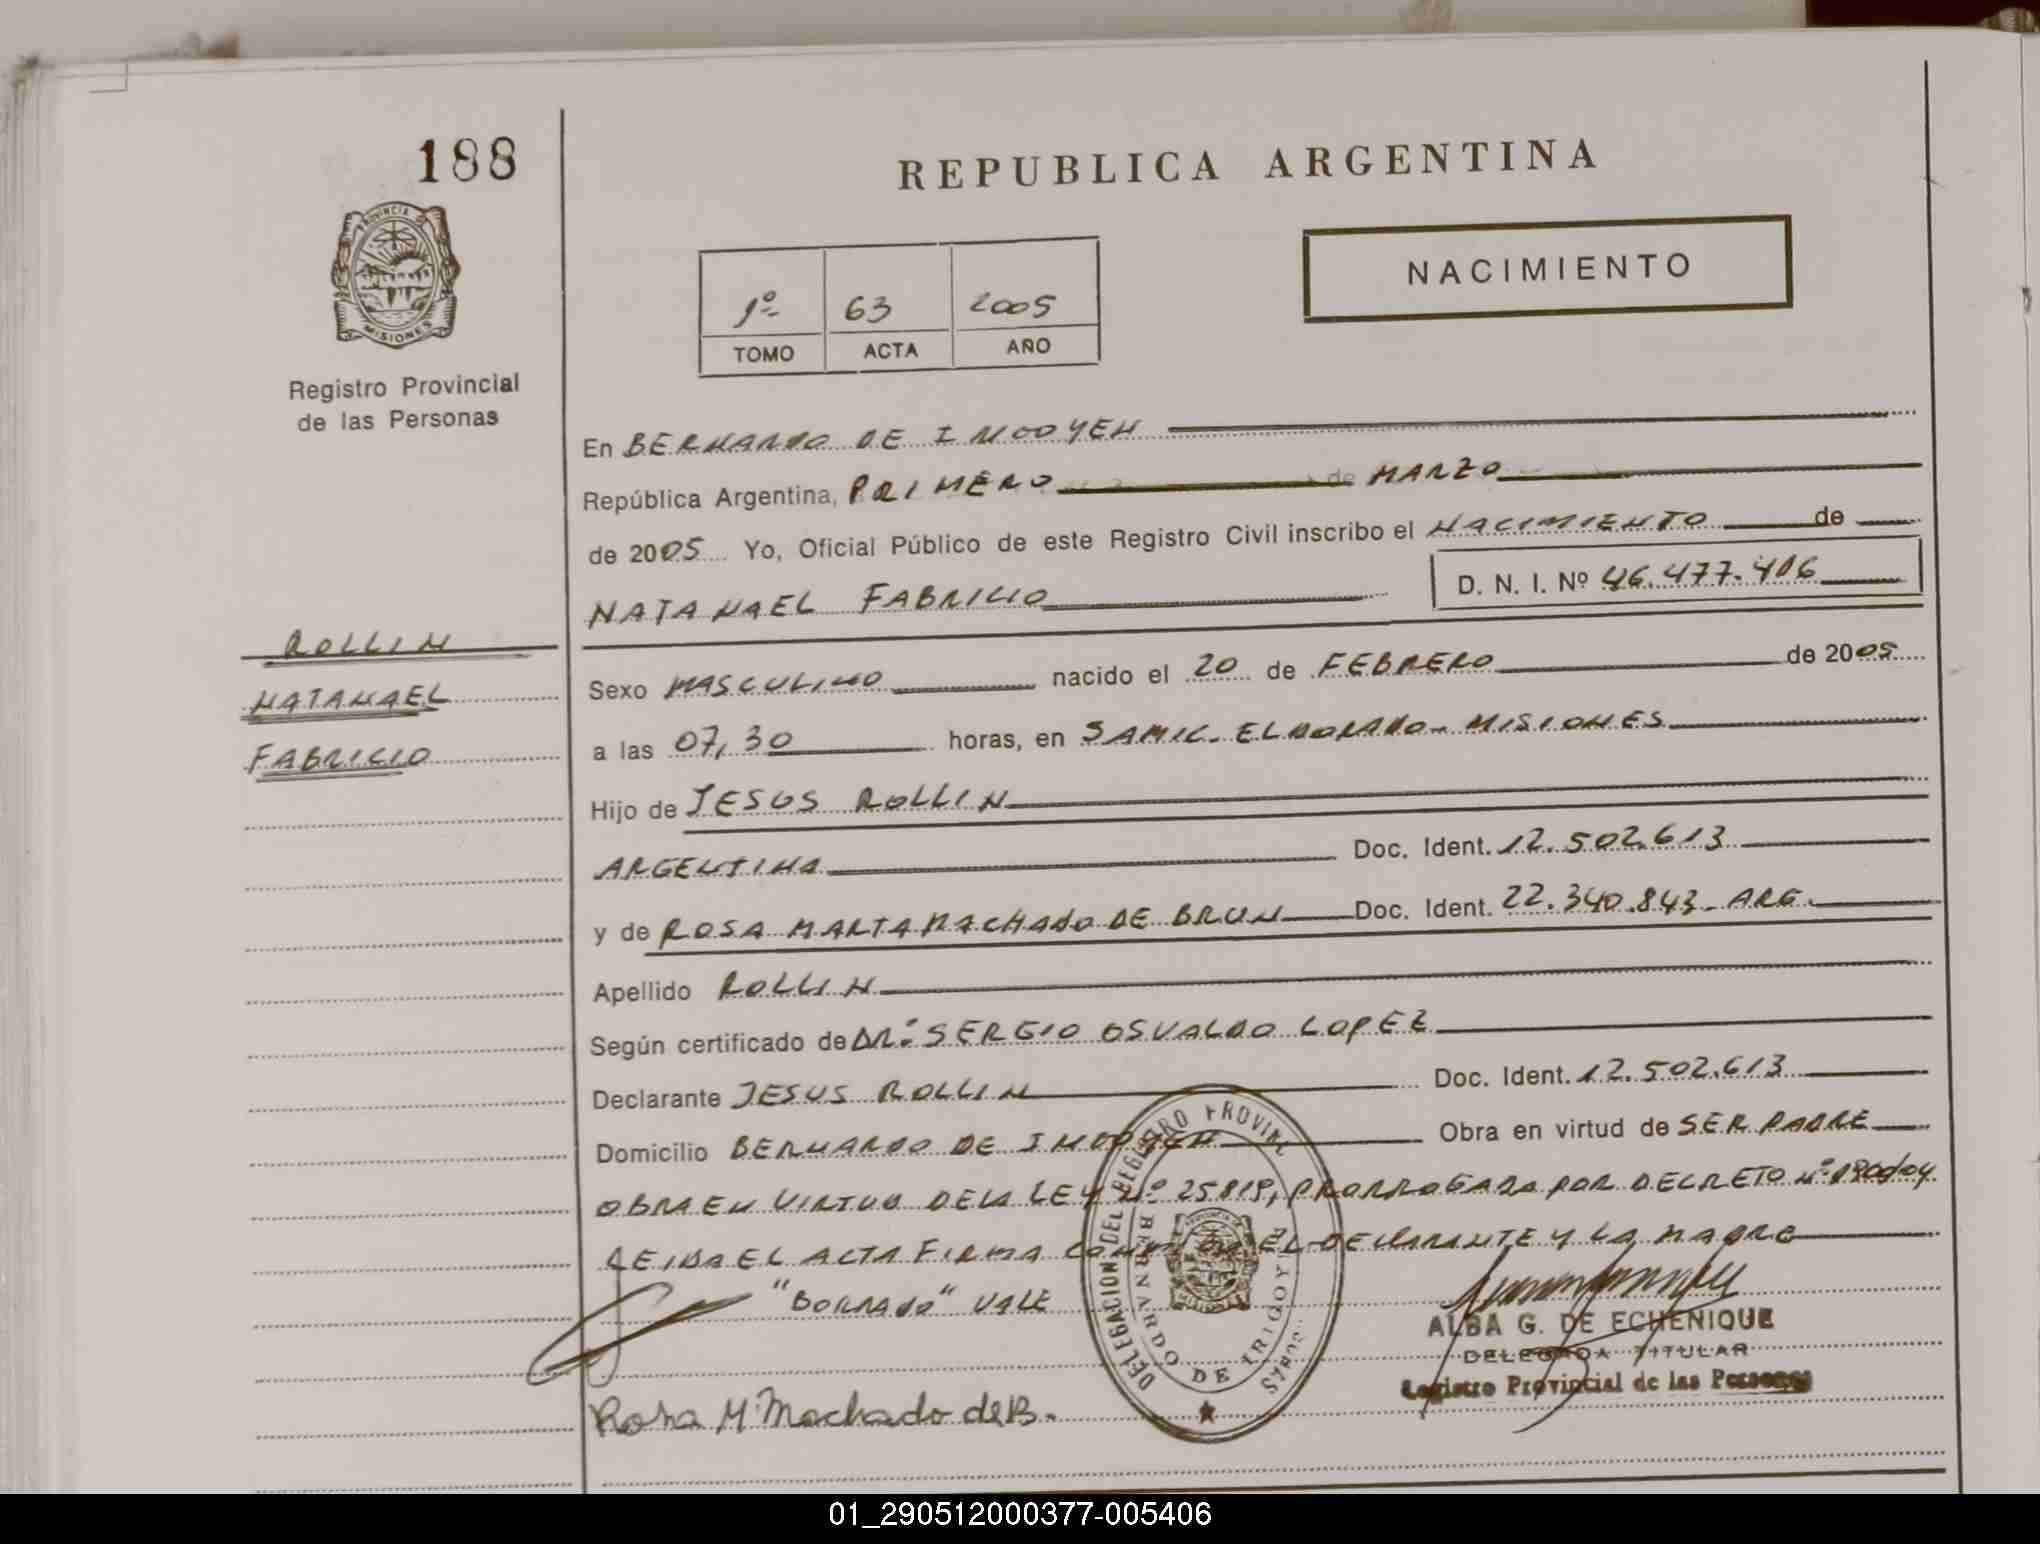 188
REPUBLICA ARGENTINA
PROVINCIA DE
MISIONES
Registro Provincial
de las Personas
1º 63 2005
TOMO ACTA AÑO
NACIMIENTO
En BERNARDO DE IRIGOYEN
República Argentina, PRIMERO de MARZO
de 2005 Yo, Oficial Público de este Registro Civil inscribo el NACIMIENTO de
NATANAEL FABRICIO D. N. I. Nº 46.477.406
ROLLIN
NATANAEL
FABRICIO
Sexo MASCULINO nacido el 20 de FEBRERO de 2005
a las 07,30 horas, en SAMIC. ELDORADO - MISIONES
Hijo de JESUS ROLLIN
ARGENTINA Doc. Ident. 12.502.613
y de ROSA MARTA MACHADO DE BRUN Doc. Ident. 22.340.843 - ARG.
Apellido ROLLIN
Según certificado de DR. SERGIO OSVALDO LOPEZ
Declarante JESUS ROLLIN Doc. Ident. 12.502.613
Domicilio BERNARDO DE IRIGOYEN Obra en virtud de SER PADRE
OBRA EN VIRTUD DE LA LEY Nº 25819, PRORROGADA POR DECRETO Nº
LEIDA EL ACTA FIRMA EL DECLARANTE Y LA MADRE
"BORRADO" VALE
DELEGACION DEL REGISTRO PROVINCIAL
BERNARDO DE IRIGOYEN
ALBA G. DE ECHENIQUE
DELEGADA TITULAR
Registro Provincial de las Personas
Rosa M. Machado de B.
01_290512000377-005406